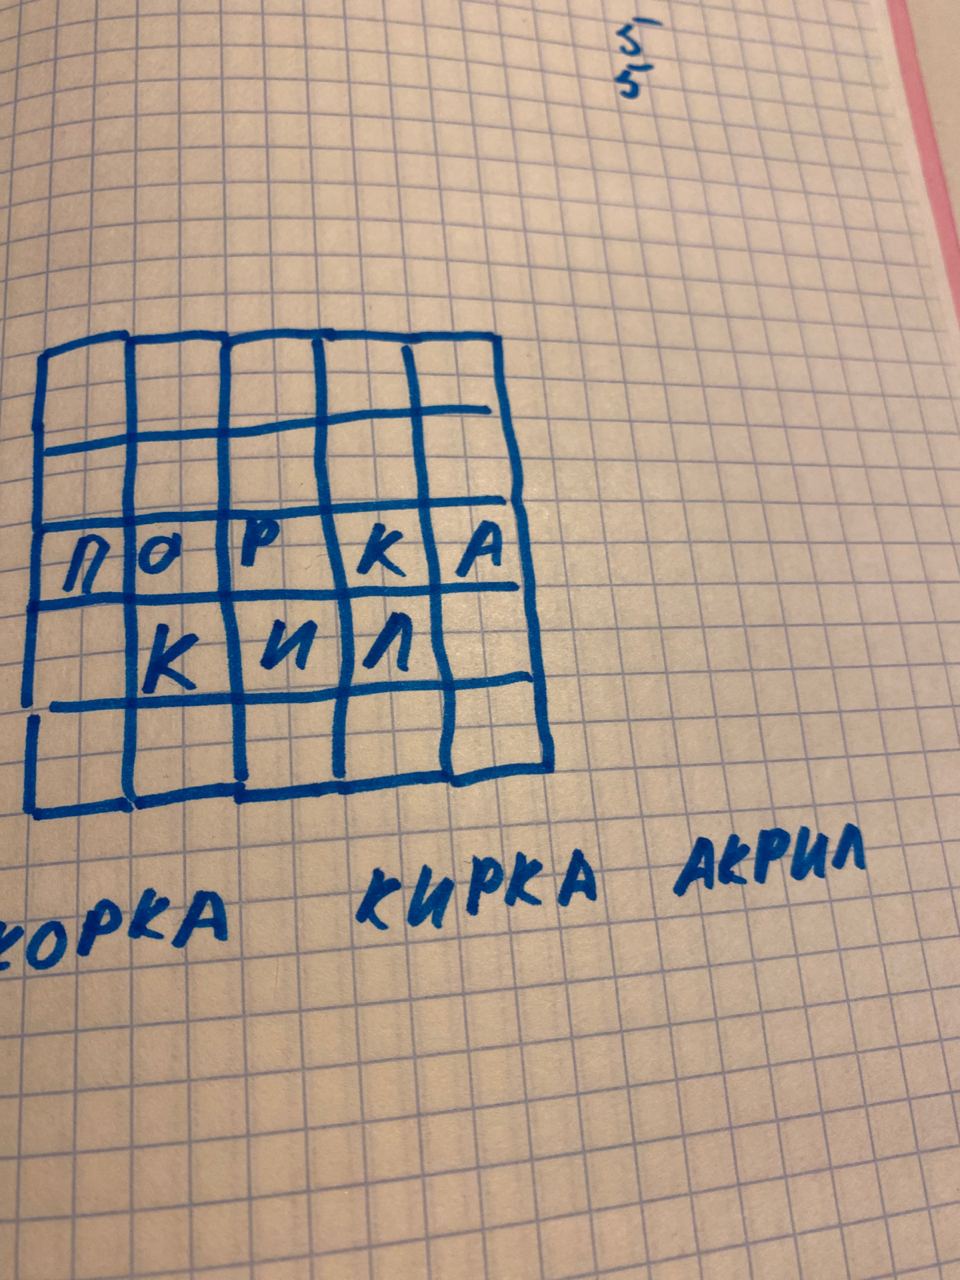 5
5
ПОРКА
КИЛ
КОРКА КИРКА АКРИЛ